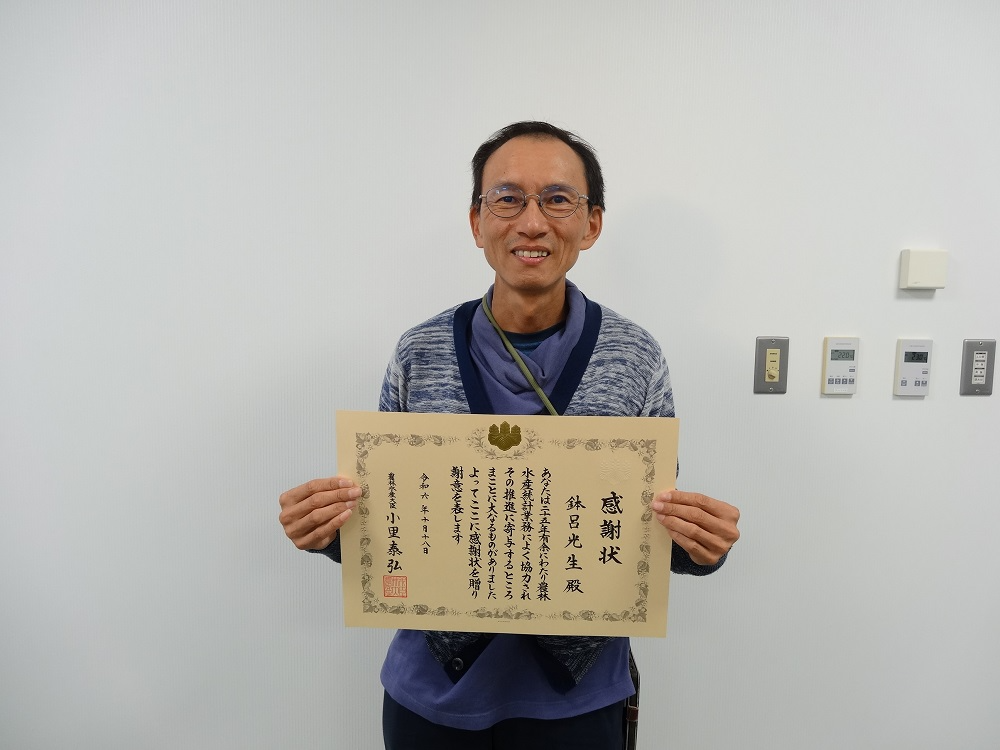 感謝状
鉢呂光生 殿
あなたは二十五年有余にわたり農林
水産統計業務によく協力され
その推進に寄与するところ
まことに大なるものがありました
よってここに感謝状を贈り
謝意を表します
令和六年十月十八日
農林水産大臣 小里泰弘